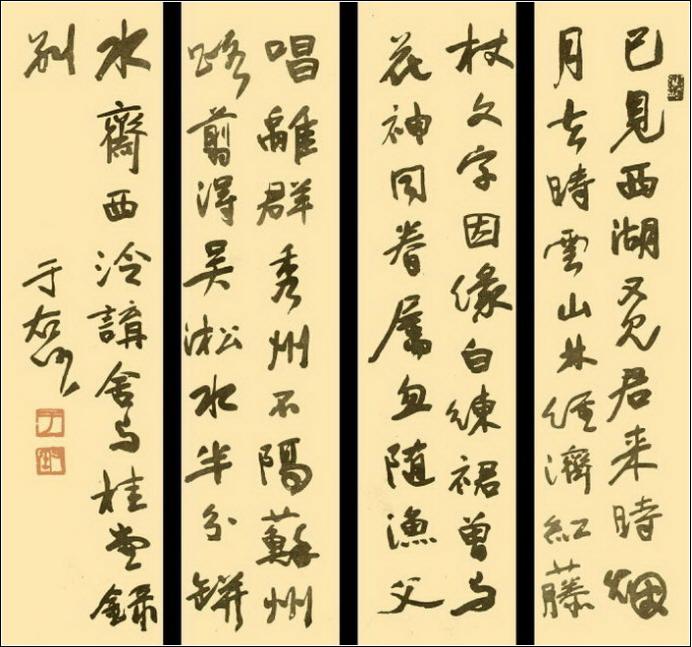 已見西湖又見君来時烟
月去時雲山林經濟紅藤
杖文字因緣白練裙曾与
花神同眷屬随漁父
唱離群秀州不隔蘇州
路翦得吳淞水半分缾
水齋西泠講舍与桂堂録
别
于右任